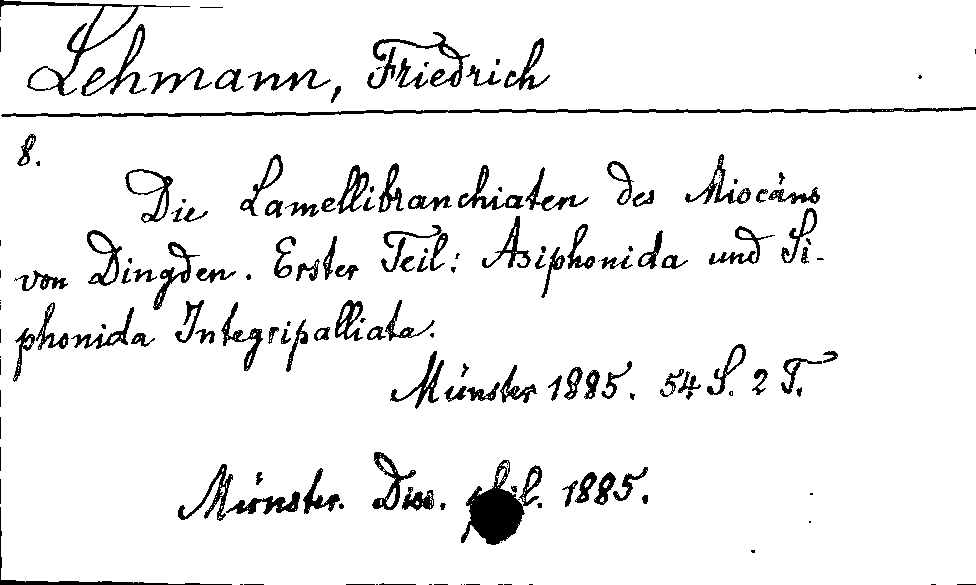 Lehmann, Friedrich
8.
Die Lamellibranchiaten des Miocäns
von Dingden. Erster Teil: Asiphonida und Si-
phonida Integripalliata.
Münster 1885. 54 S. 2 T.
Münster. Diss. phil. 1885.